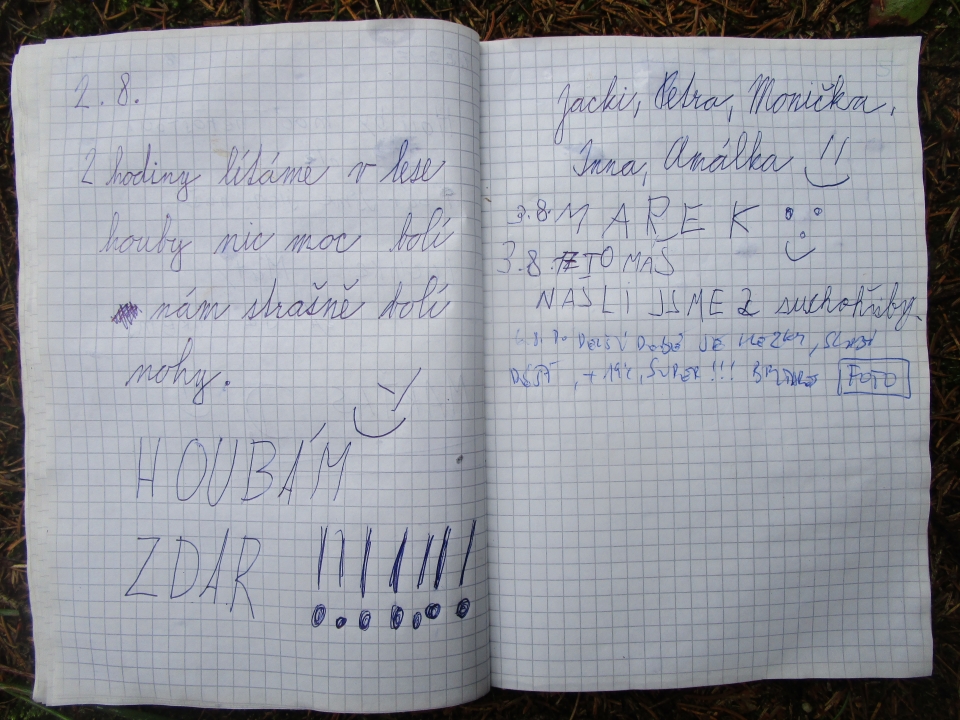 2.8.
2 hodiny lítáme v lese
houby nic moc bolí
nám strašně bolí
nohy.
HOUBÁM
ZDAR !!!!!!!!
Jacki, Petra, Monička,
Inna, Amálka
3.8. MAREK
3.8. TOMÁŠ
NAŠLI JSME 2 suchohřiby.
PO DELŠÍ DOBĚ JE HEZKY, SLABÝ
DÉŠŤ, SUPER!!! FOTO